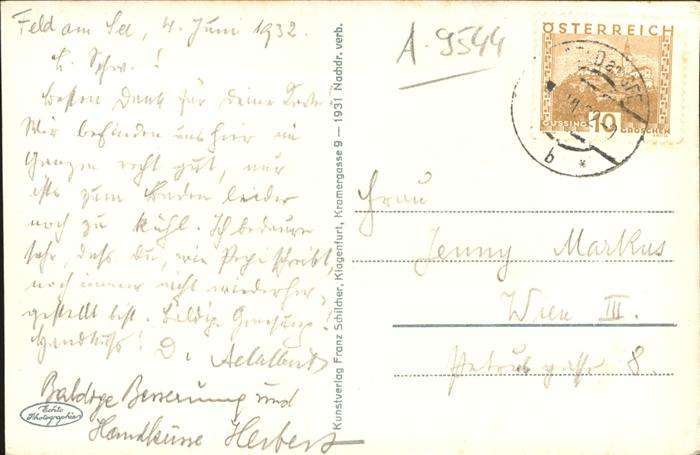 Feld am See, 4. Juni 1932.
L. Schw.!
Besten Dank für Deine Karte.
Wir befinden uns hier im
Ganzen recht gut, nur
ists zum Baden leider
noch zu kühl. Ich bedaure
sehr, dass Du, wie Pepi schreibt,
noch immer nicht wiederher-
gestellt bist. Baldige Genesung!
Handkuss! D.
Baldige Besserung und
Handküsse Herbert
Echte
Photographie
Kunstverlag Franz Schilcher, Klagenfurt, Kramergasse 9 — 1931 Nachdr. verb.
A 9544
ÖSTERREICH
GÜSSING 10 GROSCHEN
b *
Frau
Jenny Markus
Wien III.
Petrusgasse 8.